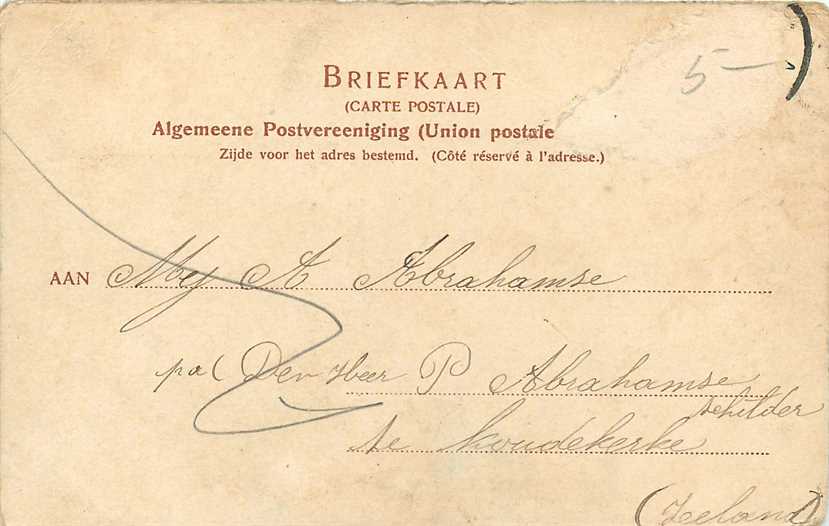 5-
BRIEFKAART
(CARTE POSTALE)
Algemeene Postvereeniging (Union postale
Zijde voor het adres bestemd. (Côté réservé à l'adresse.)
AAN Mej A Abrahamse
pa( Den Heer P Abrahamse
schilder
te Koudekerke
(Zeeland)